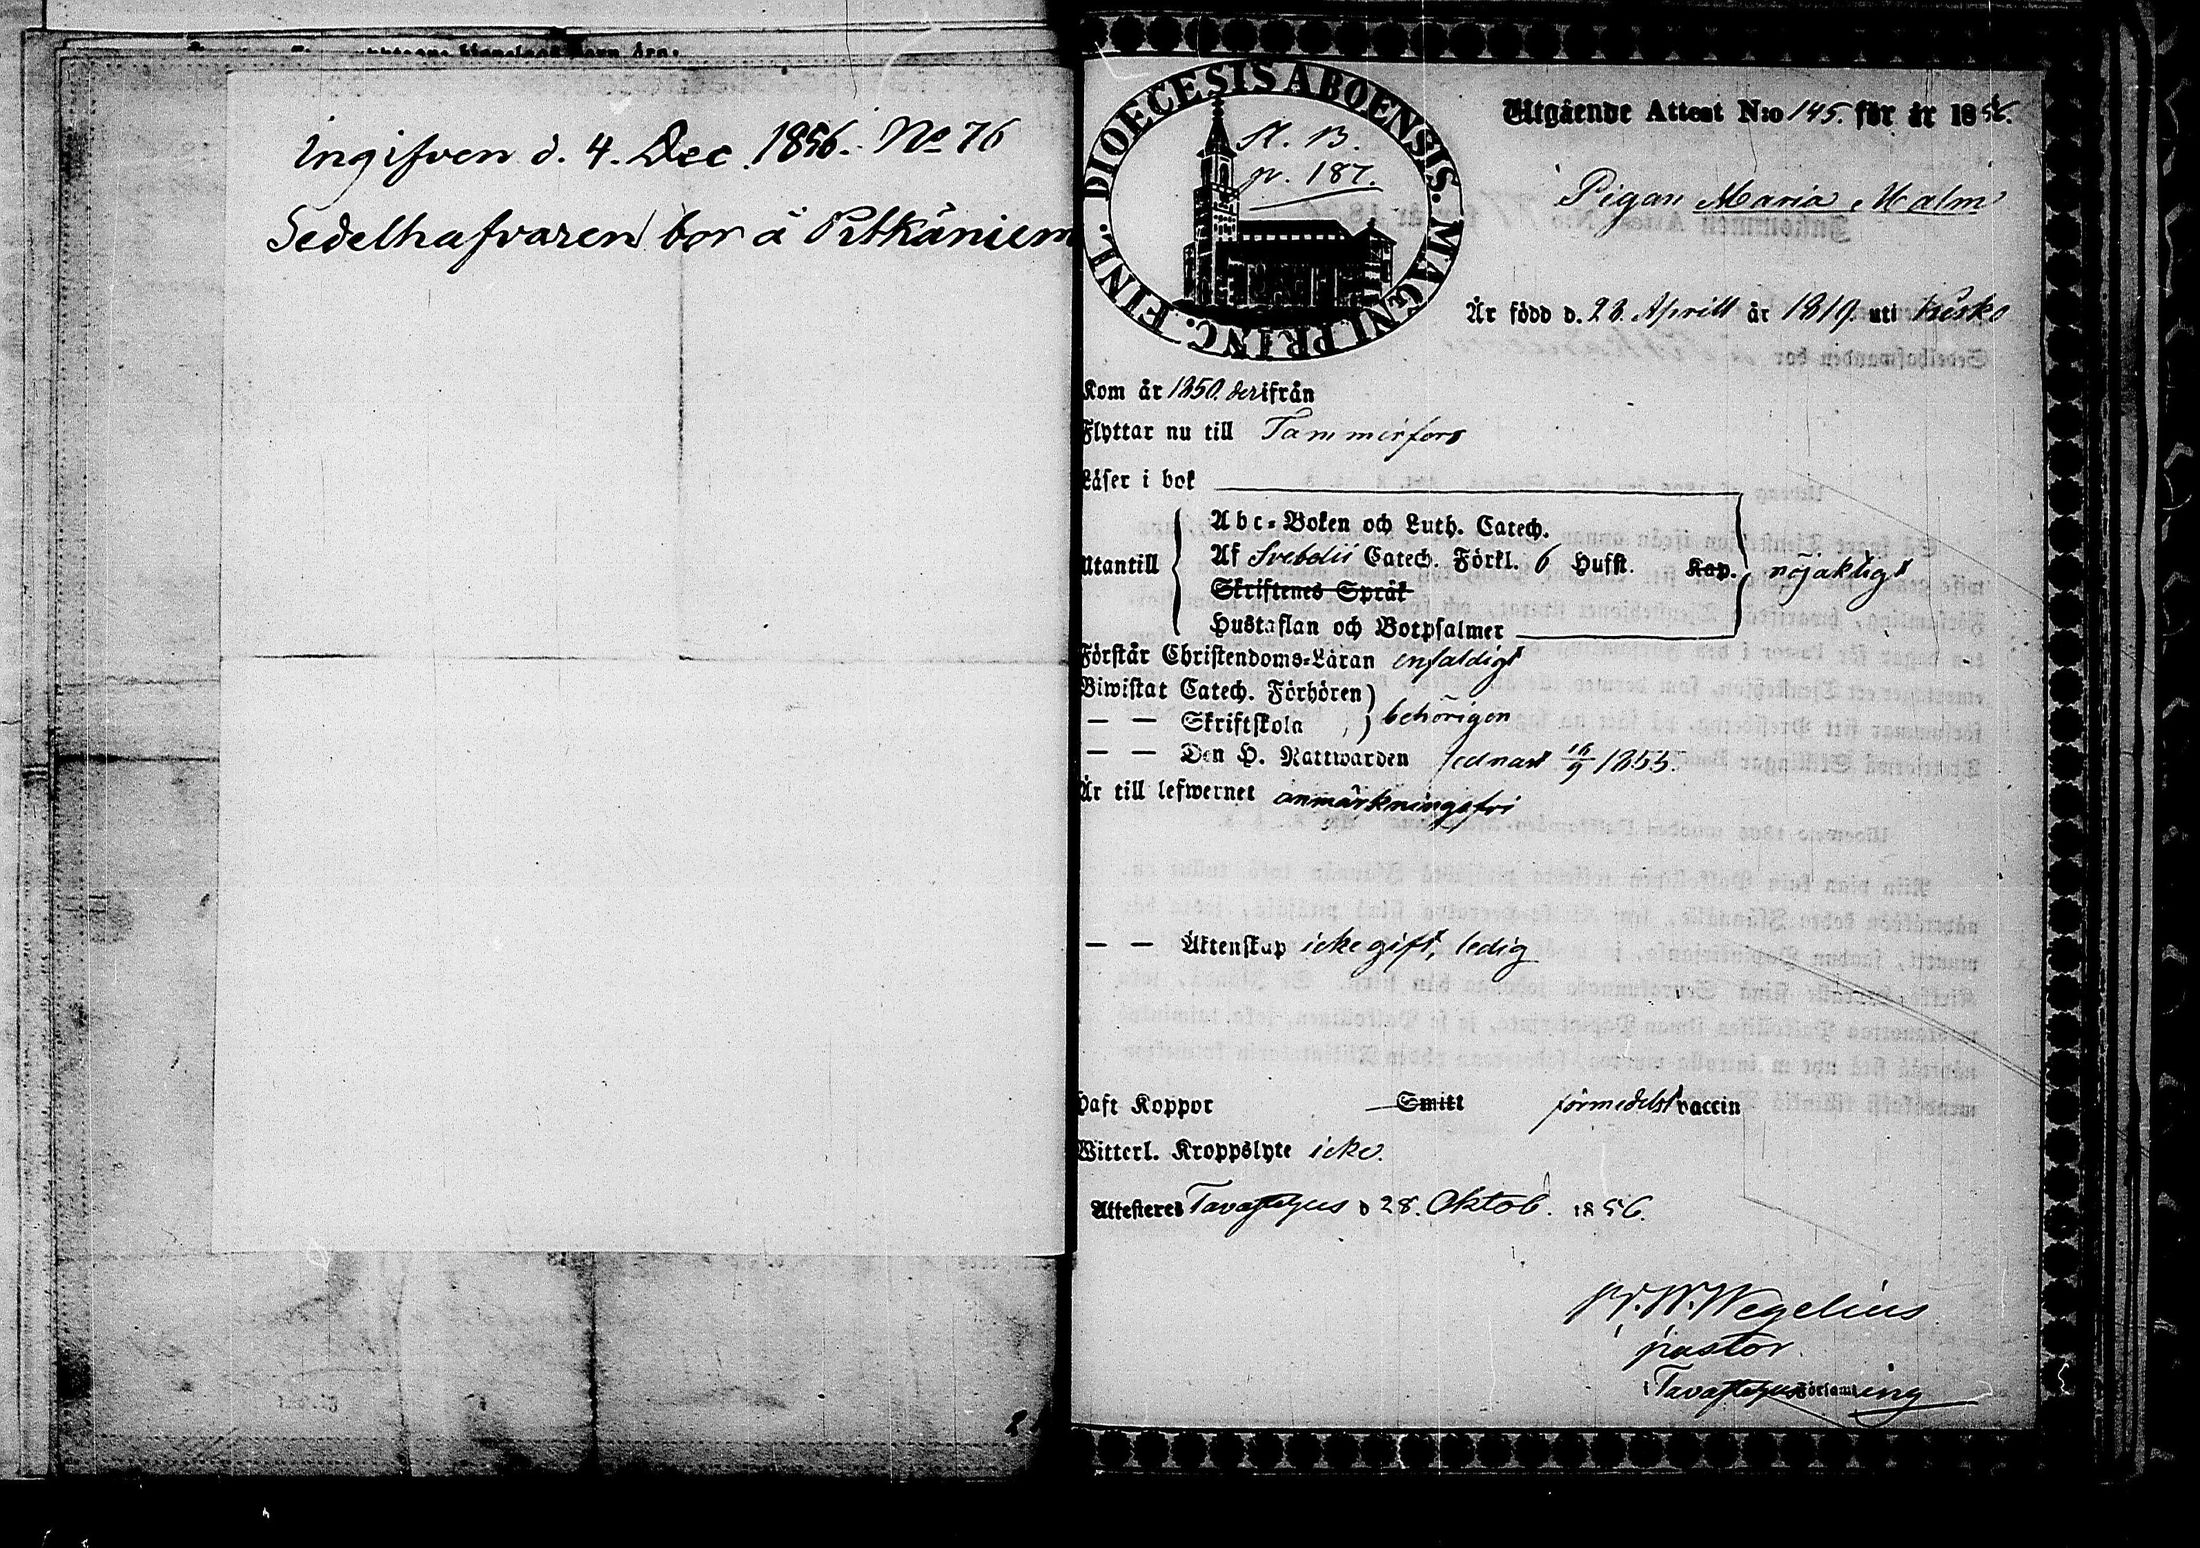 Ingifven d. 4. Dec. 1856. No 76
Sedelhafvaren bor å Pitkäniem
DIOECESIS ABOENSIS. MAGNI PRINC. FINL.
N. B.
p. 187.
Utgående Attest N:o 145. för år 1856.
Pigan Maria Malm
Är född d. 23. Aprill år 1819. uti Kusko
Kom år 1850. derifrån
Flyttar nu till Tammerfors
Läser i bok
Abc-Boken och Luth. Catech.
Utantill Af Svebelii Catech. Förkl. 6 Hufst. Kap. nöjaktigt
Skriftenes Språk
Hustaflan och Botpsalmer
Förstår Christendoms-Läran enfaldigt
Biwistat Catech. Förhören
— — Skriftskola behörigen
— — Den H. Nattwarden sednast 16/9 1855.
Är till lefwernet anmärkningsfri
— — Äktenskap icke gift, ledig
Haft Koppor Smitt förmedelst vaccin
Witterl. Kroppslyte icke.
Attesteres Tavastehus d 28. Oktob. 1856.
W. Wegelius
pastor
i Tavastehus Församling